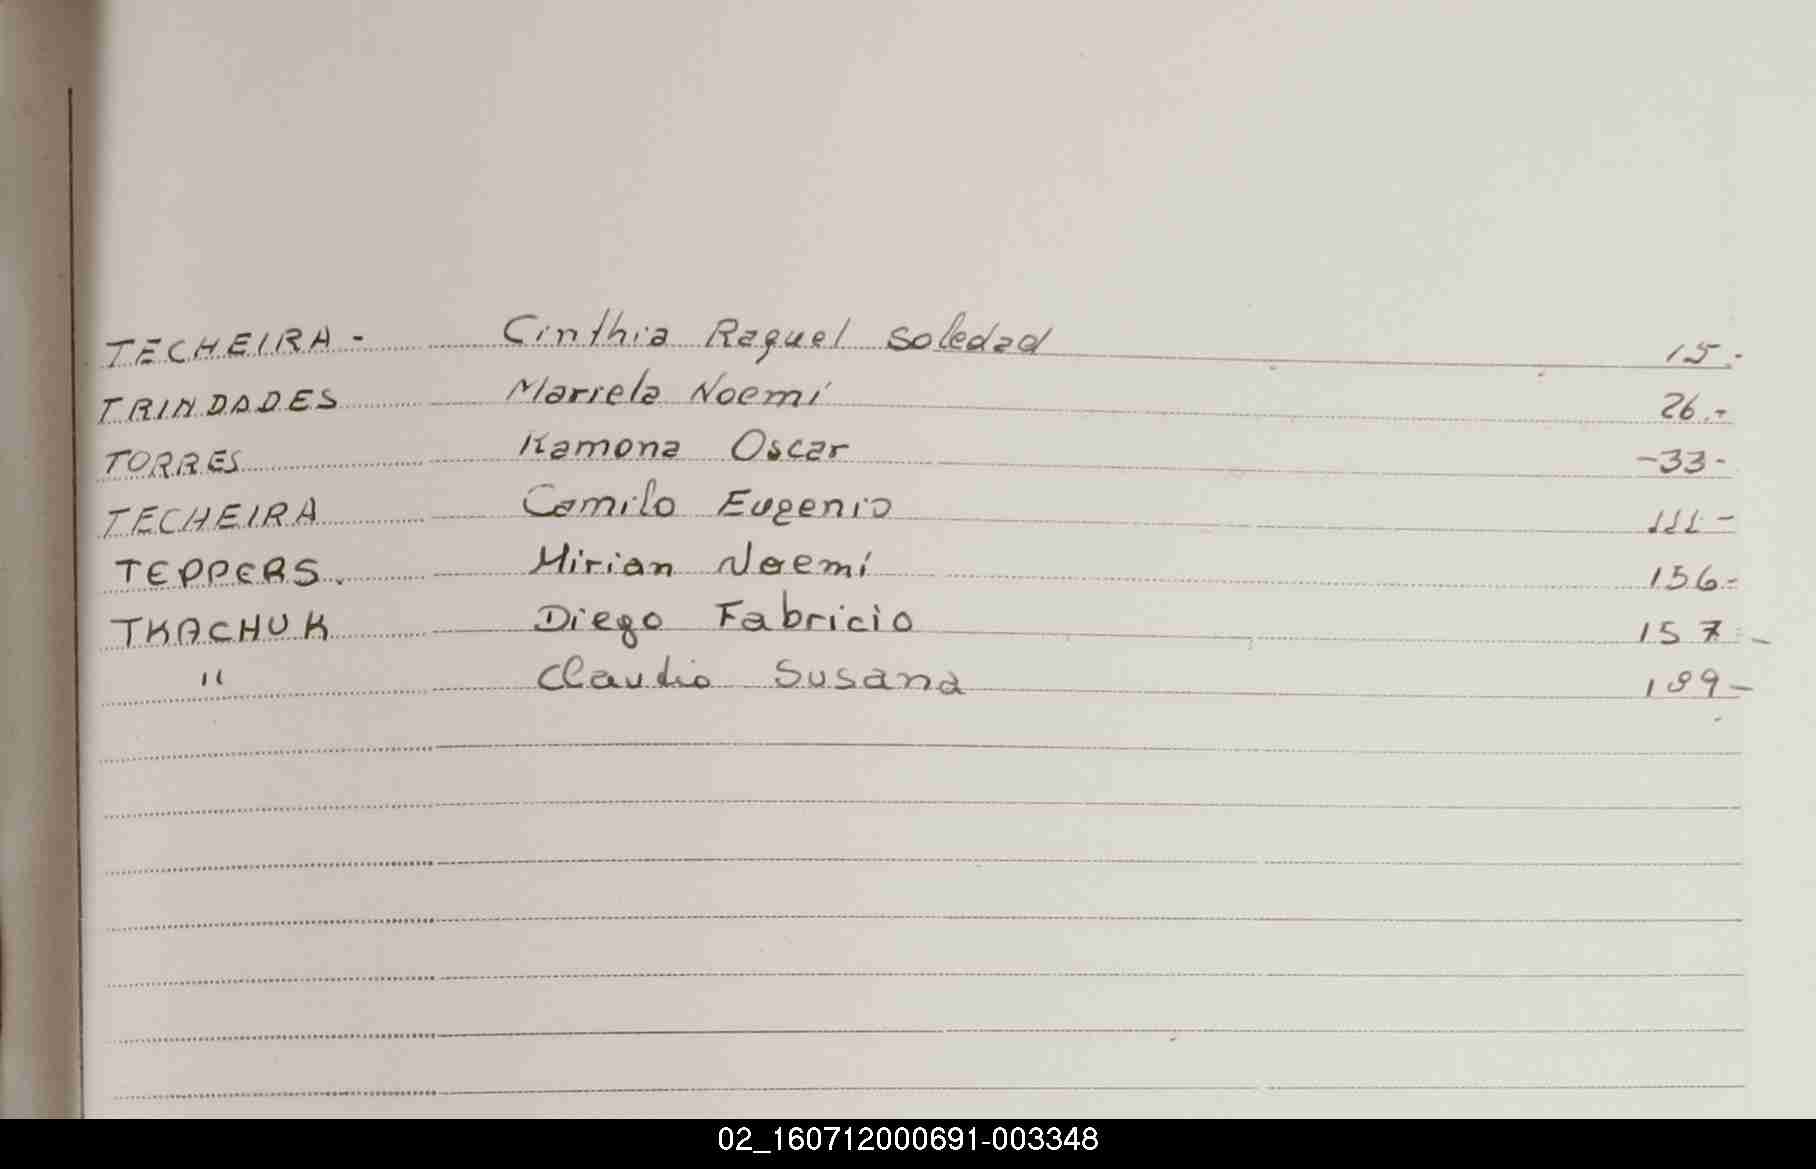 TECHEIRA - Cinthia Raquel Soledad 15.
TRINDADES Mariela Noemí 26.-
TORRES Ramona Oscar -33-
TECHEIRA Camilo Eugenio 111-
TEPPERS. Mirian Noemí 156-
TKACHUK Diego Fabricio 157-
" Claudio Susana 189-
02_160712000691-003348